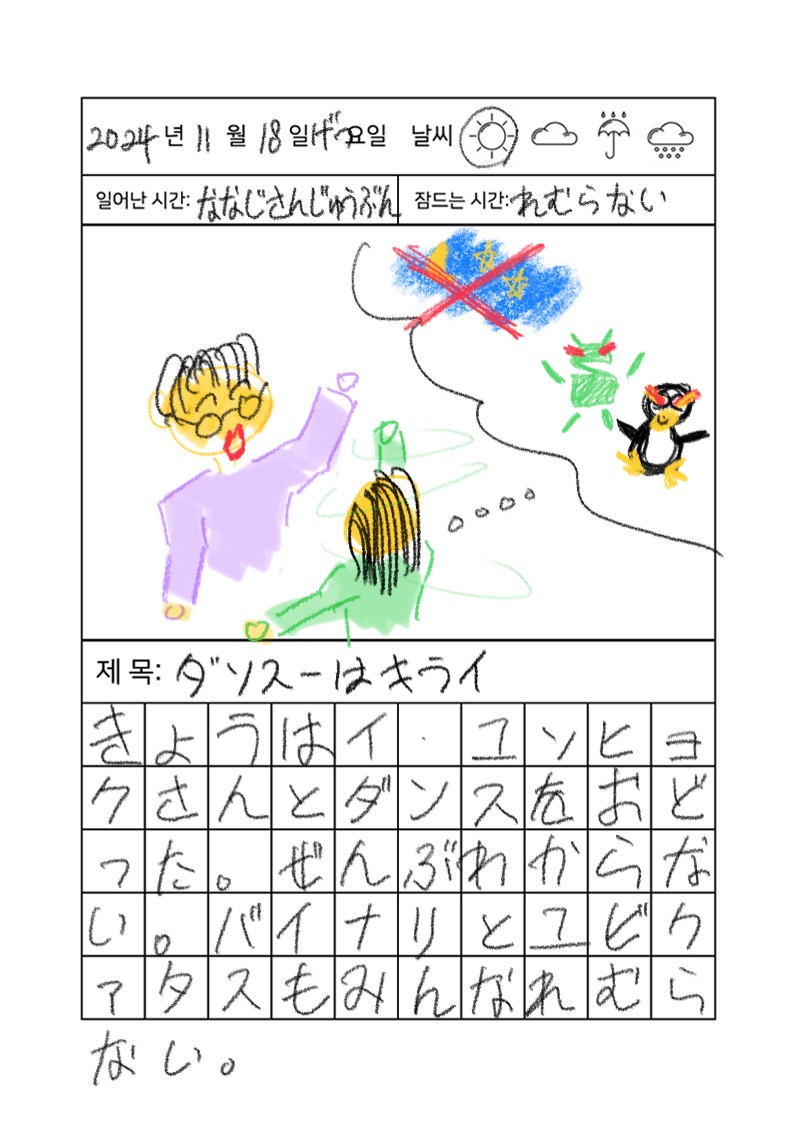 2024 년 11 월 18 일 げつ요일 날씨
일어난 시간: ななじさんじゅうぶん 잠드는 시간: れむらない
제 목: ダンスーはキライ
きょうはイ·ユンヒョ
クさんとダンスをおど
った。ぜんぶわからな
い。バイナリとユビク
ァタスもみんなれむら
ない。